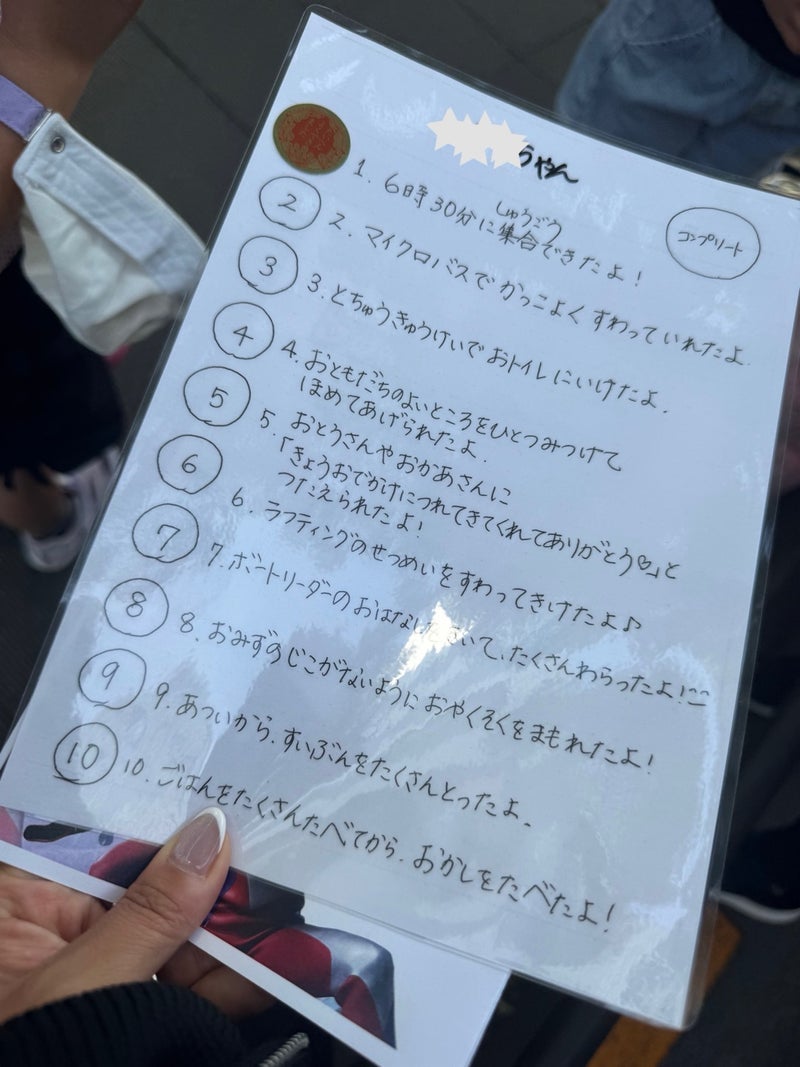 ちゃん
コンプリート
1. 6時30分に集合できたよ!
しゅうごう
2 2. マイクロバスでかっこよくすわっていれたよ.
3 3. とちゅうきゅうけいでおトイレにいけたよ.
4 4. おともだちのよいところをひとつみつけて
ほめてあげられたよ.
5 5. おとうさんやおかあさんに
「きょうおでかけにつれてきてくれてありがとう♡」と
つたえられたよ!
6 6. ラフティングのせつめいをすわってきけたよ♪
7 7. ボートリーダーのおはなしをきいて、たくさんわらったよ!
8 8. おみずのじこがないようにおやくそくをまもれたよ!
9 9. あついから、すいぶんをたくさんとったよ.
10 10. ごはんをたくさんたべてから、おかしをたべたよ!